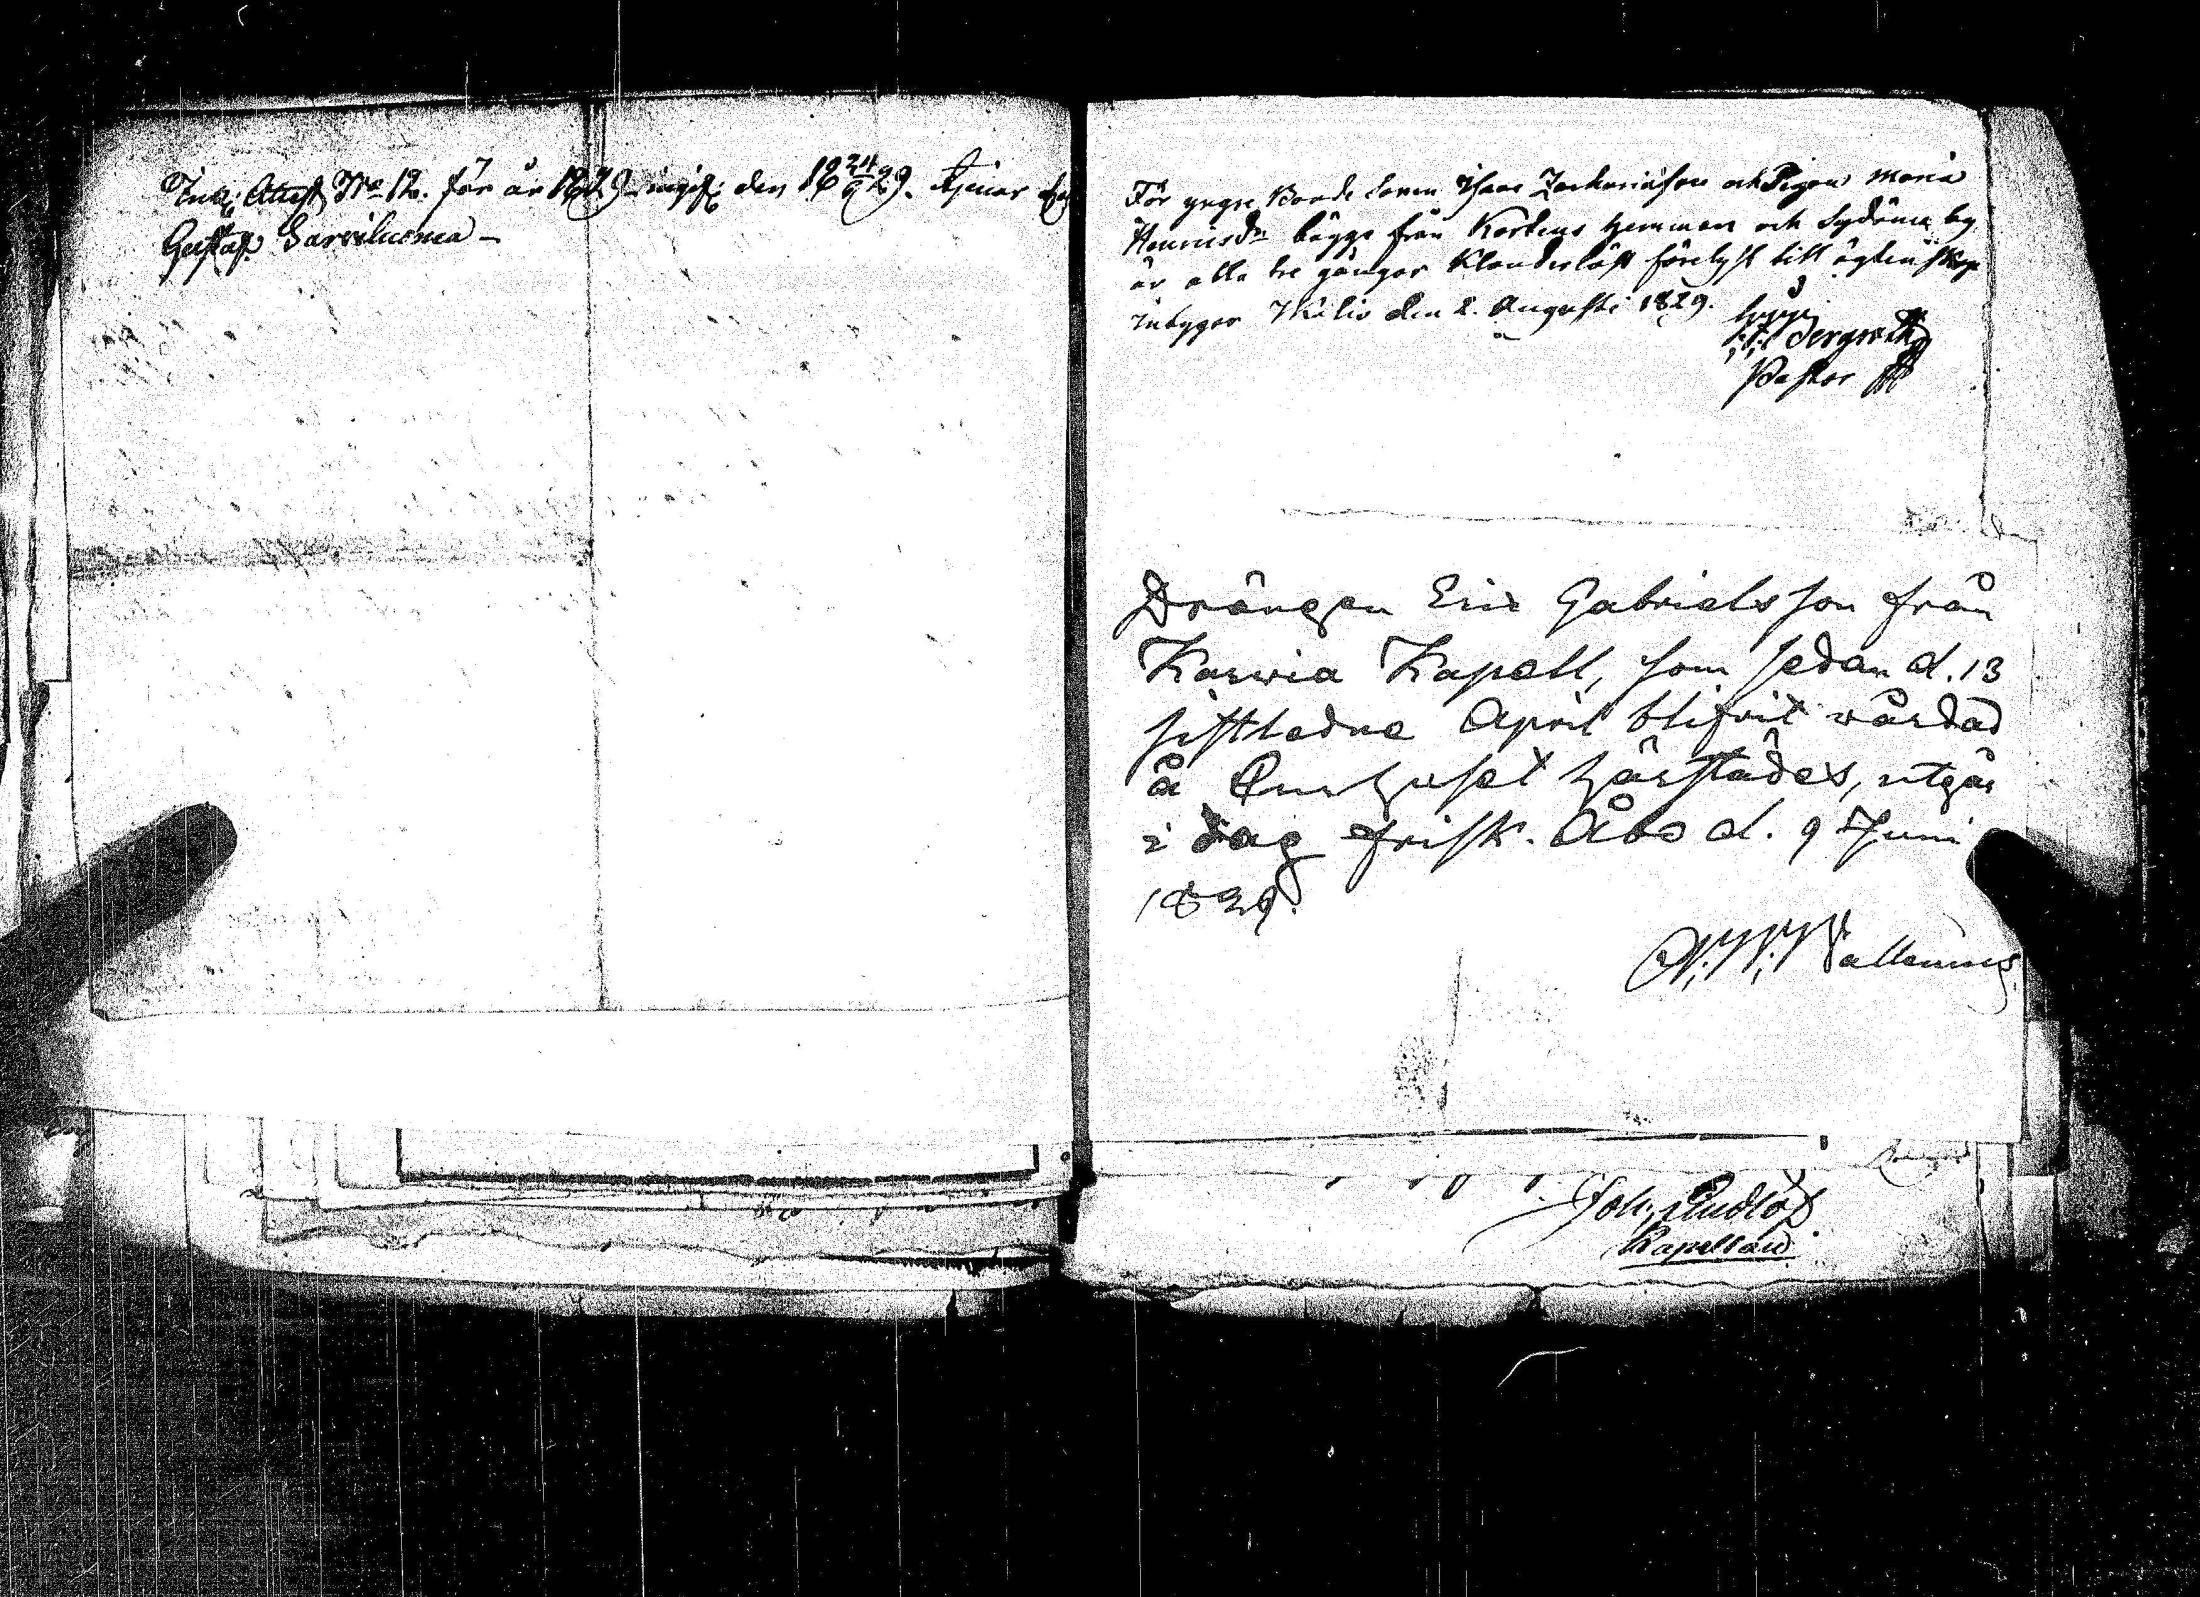 Attest No 12. för år 1829 ingif: den 18 24/6 29. tjenar
Gustaf Sarviluoma –
För yngre Bonde Sonen Isaac Zachariäson och Pigan Maria
Henricsdr bägge från Kortens hemman och Sydänm by
är alla tre gångor Klanderlöst förelyst till ägtenskap
intygar Thilis den 2. Augusti 1829.
Pastor
Drängen Eric Gabrielsson från
Karvia Kapell, som sedan d. 13
sistledne April blifvit vårdad
å Curhuset härstädes, utgår
i dag frisk. Åbo d. 9 Juni
1829.
Joh.
Kapellan